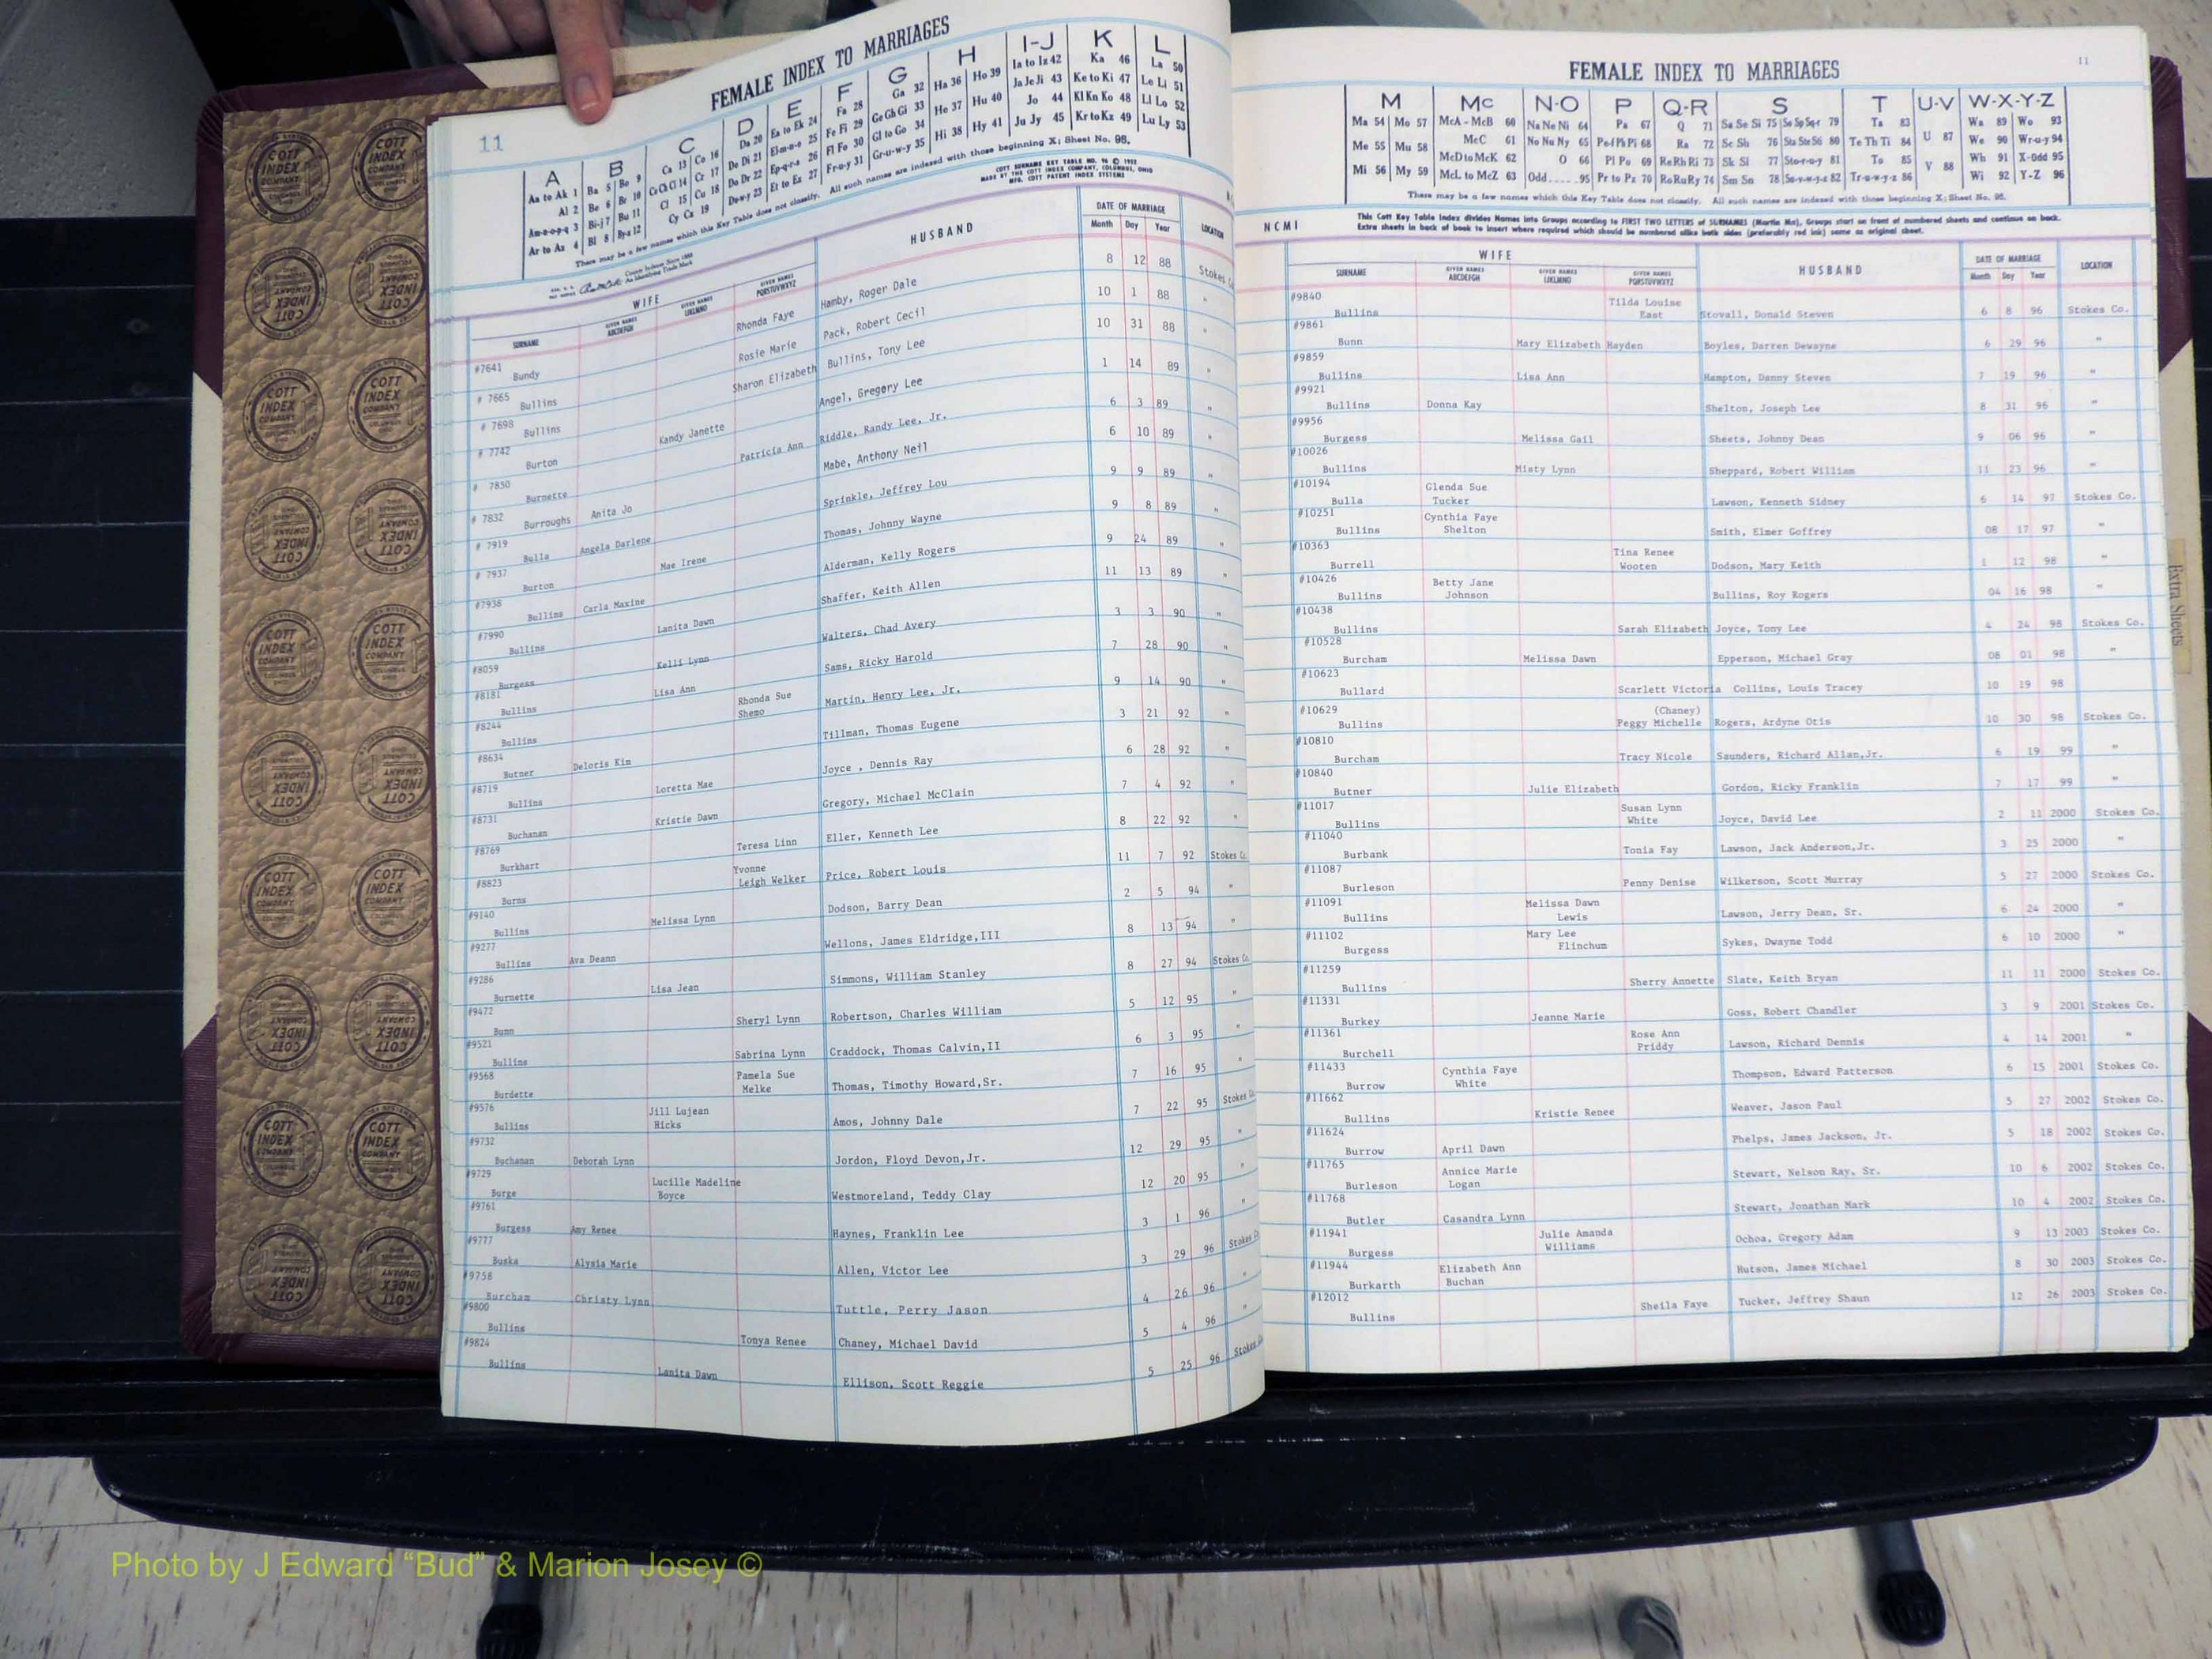 11
FEMALE INDEX TO MARRIAGES
A B C D E F G H I-J K L
Aa to Ak 1 Ba 5 Bo 9 Ca 13 Co 16 Da 20 Ea to Ek 24 Fa 28 Ga 32 Ha 36 Ho 39 Ia to Iz 42 Ka 46 La 50
Al 2 Be 6 Br 10 Ce Ch Ci 14 Cr 17 De Di 21 El-m-n-o 25 Fe Fi 29 Ge Gh Gi 33 He 37 Hu 40 Ja Je Ji 43 Ke to Ki 47 Le Li 51
Am-n-o-p-q 3 Bi-j 7 Bu 11 Cl 15 Cu 18 Do Dr 22 Ep-q-r-s 26 Fl Fo 30 Gl to Go 34 Hi 38 Hy 41 Jo 44 Kl Kn Ko 48 Ll Lo 52
Ar to Az 4 Bl 8 By-z 12 Cy Cz 19 Du-w-y 23 Et to Ez 27 Fr-u-y 31 Gr-u-w-y 35 Ju Jy 45 Kr to Kz 49 Lu Ly 53
There may be a few names which this Key Table does not classify. All such names are indexed with those beginning X; Sheet No. 95.
WIFE HUSBAND DATE OF MARRIAGE LOCATION
SURNAME GIVEN NAMES ABCDEFGH GIVEN NAMES IJKLMNO GIVEN NAMES PQRSTUVWXYZ Month Day Year
#7641 Bundy Rhonda Faye Hamby, Roger Dale 8 12 88 Stokes
# 7665 Bullins Rosie Marie Pack, Robert Cecil 10 1 88 "
# 7698 Bullins Sharon Elizabeth Bullins, Tony Lee 10 31 88 "
# 7742 Burton Kandy Janette Angel, Gregory Lee 1 14 89 "
# 7850 Burnette Patricia Ann Riddle, Randy Lee, Jr. 6 3 89 "
# 7832 Burroughs Anita Jo Mabe, Anthony Neil 6 10 89 "
# 7919 Bulla Angela Darlene Sprinkle, Jeffrey Lou 9 9 89 "
# 7937 Burton Mae Irene Thomas, Johnny Wayne 9 8 89 "
#7936 Bullins Carla Maxine Alderman, Kelly Rogers 9 24 89 "
#7990 Bullins Lanita Dawn Shaffer, Keith Allen 11 13 89 "
#8059 Burgess Kelli Lynn Walters, Chad Avery 3 3 90 "
#8181 Bullins Lisa Ann Sams, Ricky Harold 7 28 90 "
#8244 Bullins Rhonda Sue Shemo Martin, Henry Lee, Jr. 9 14 90 "
#8634 Butner Deloris Kim Tillman, Thomas Eugene 3 21 92 "
#8719 Bullins Loretta Mae Joyce , Dennis Ray 6 28 92 "
#8731 Buchanan Kristie Dawn Gregory, Michael McClain 7 4 92 "
#8769 Burkhart Teresa Linn Eller, Kenneth Lee 8 22 92 "
#8823 Burns Yvonne Leigh Welker Price, Robert Louis 11 7 92 Stokes Co.
#9140 Bullins Melissa Lynn Dodson, Barry Dean 2 5 94 "
#9277 Bullins Ava Deann Wellons, James Eldridge,III 8 13 94 "
#9286 Burnette Lisa Jean Simmons, William Stanley 8 27 94 Stokes Co.
#9472 Bunn Sheryl Lynn Robertson, Charles William 5 12 95 "
#9521 Bullins Sabrina Lynn Craddock, Thomas Calvin,II 6 3 95 "
#9568 Burdette Pamela Sue Melke Thomas, Timothy Howard,Sr. 7 16 95 "
#9576 Bullins Jill Lujean Hicks Amos, Johnny Dale 7 22 95 Stokes Co.
#9732 Buchanan Deborah Lynn Jordon, Floyd Devon,Jr. 12 29 95 "
#9729 Burge Lucille Madeline Boyce Westmoreland, Teddy Clay 12 20 95 "
#9761 Burgess Amy Renee Haynes, Franklin Lee 3 1 96 "
#9777 Buska Alysia Marie Allen, Victor Lee 3 29 96 Stokes Co
#9758 Burcham Christy Lynn Tuttle, Perry Jason 4 26 96 "
#9800 Bullins Tonya Renee Chaney, Michael David 5 4 96 "
#9824 Bullins Lanita Dawn Ellison, Scott Reggie 5 25 96 Stokes Co
11
FEMALE INDEX TO MARRIAGES
M Mc N-O P Q-R S T U-V W-X-Y-Z
Ma 54 Mo 57 McA - McB 60 Na Ne Ni 64 Pa 67 Q 71 Sa Se Si 75 So Sp Sq-r 79 Ta 83 U 87 Wa 89 Wo 93
Me 55 Mu 58 McC 61 No Nu Ny 65 Pe-f Ph Pi 68 Ra 72 Sc Sh 76 Sta Ste Sti 80 Te Th Ti 84 V 88 We 90 Wr-u-y 94
Mi 56 My 59 McD to McK 62 O 66 Pl Po 69 Re Rh Ri 73 Sk Sl 77 Sto-r-u-y 81 To 85 Wh 91 X-Odd 95
McL to McZ 63 Odd.....95 Pr to Pz 70 Ro Ru Ry 74 Sm Sn 78 Su-v-w-y-z 82 Tr-u-w-y-z 86 Wi 92 Y-Z 96
There may be a few names which this Key Table does not classify. All such names are indexed with those beginning X; Sheet No. 95.
NCMI
This Cott Key Table Index divides Names into Groups according to FIRST TWO LETTERS of SURNAMES (Martin Ma), Groups start on front of numbered sheets and continue on back.
Extra sheets in back of book to insert where required which should be numbered alike both sides (preferably red ink) same as original sheet.
WIFE HUSBAND DATE OF MARRIAGE LOCATION
SURNAME GIVEN NAMES ABCDEFGH GIVEN NAMES IJKLMNO GIVEN NAMES PQRSTUVWXYZ Month Day Year
#9840 Bullins Tilda Louise East Stovall, Donald Steven 6 8 96 Stokes Co.
#9861 Bunn Mary Elizabeth Hayden Boyles, Darren Dewayne 6 29 96 "
#9859 Bullins Lisa Ann Hampton, Danny Steven 7 19 96 "
#9921 Bullins Donna Kay Shelton, Joseph Lee 8 31 96 "
#9956 Burgess Melissa Gail Sheets, Johnny Dean 9 06 96 "
#10026 Bullins Misty Lynn Sheppard, Robert William 11 23 96 "
#10194 Bulla Glenda Sue Tucker Lawson, Kenneth Sidney 6 14 97 Stokes Co.
#10251 Bullins Cynthia Faye Shelton Smith, Elmer Goffrey 08 17 97 "
#10363 Burrell Tina Renee Wooten Dodson, Mary Keith 1 12 98 "
#10426 Bullins Betty Jane Johnson Bullins, Roy Rogers 04 16 98 "
#10438 Bullins Sarah Elizabeth Joyce, Tony Lee 4 24 98 Stokes Co.
#10528 Burcham Melissa Dawn Epperson, Michael Gray 08 01 98 "
#10623 Bullard Scarlett Victoria Collins, Louis Tracey 10 19 98
#10629 Bullins (Chaney) Peggy Michelle Rogers, Ardyne Otis 10 30 98 Stokes Co.
#10810 Burcham Tracy Nicole Saunders, Richard Allan,Jr. 6 19 99 "
#10840 Butner Julie Elizabeth Gordon, Ricky Franklin 7 17 99 "
#11017 Bullins Susan Lynn White Joyce, David Lee 2 11 2000 Stokes Co.
#11040 Burbank Tonia Fay Lawson, Jack Anderson,Jr. 3 25 2000 "
#11087 Burleson Penny Denise Wilkerson, Scott Murray 5 27 2000 Stokes Co.
#11091 Bullins Melissa Dawn Lewis Lawson, Jerry Dean, Sr. 6 24 2000 "
#11102 Burgess Mary Lee Flinchum Sykes, Dwayne Todd 6 10 2000 "
#11259 Bullins Sherry Annette Slate, Keith Bryan 11 11 2000 Stokes Co.
#11331 Burkey Jeanne Marie Goss, Robert Chandler 3 9 2001 Stokes Co.
#11361 Burchell Rose Ann Priddy Lawson, Richard Dennis 4 14 2001 "
#11433 Burrow Cynthia Faye White Thompson, Edward Patterson 6 15 2001 Stokes Co.
#11662 Bullins Kristie Renee Weaver, Jason Paul 5 27 2002 Stokes Co.
#11624 Burrow April Dawn Phelps, James Jackson, Jr. 5 18 2002 Stokes Co.
#11765 Burleson Annice Marie Logan Stewart, Nelson Ray, Sr. 10 6 2002 Stokes Co.
#11768 Butler Casandra Lynn Stewart, Jonathan Mark 10 4 2002 Stokes Co.
#11941 Burgess Julie Amanda Williams Ochoa, Gregory Adam 9 13 2003 Stokes Co.
#11944 Burkarth Elizabeth Ann Buchan Hutson, James Michael 8 30 2003 Stokes Co.
#12012 Bullins Sheila Faye Tucker, Jeffrey Shaun 12 26 2003 Stokes Co.
Extra Sheets
COTT INDEX COMPANY
Photo by J Edward “Bud” & Marion Josey ©